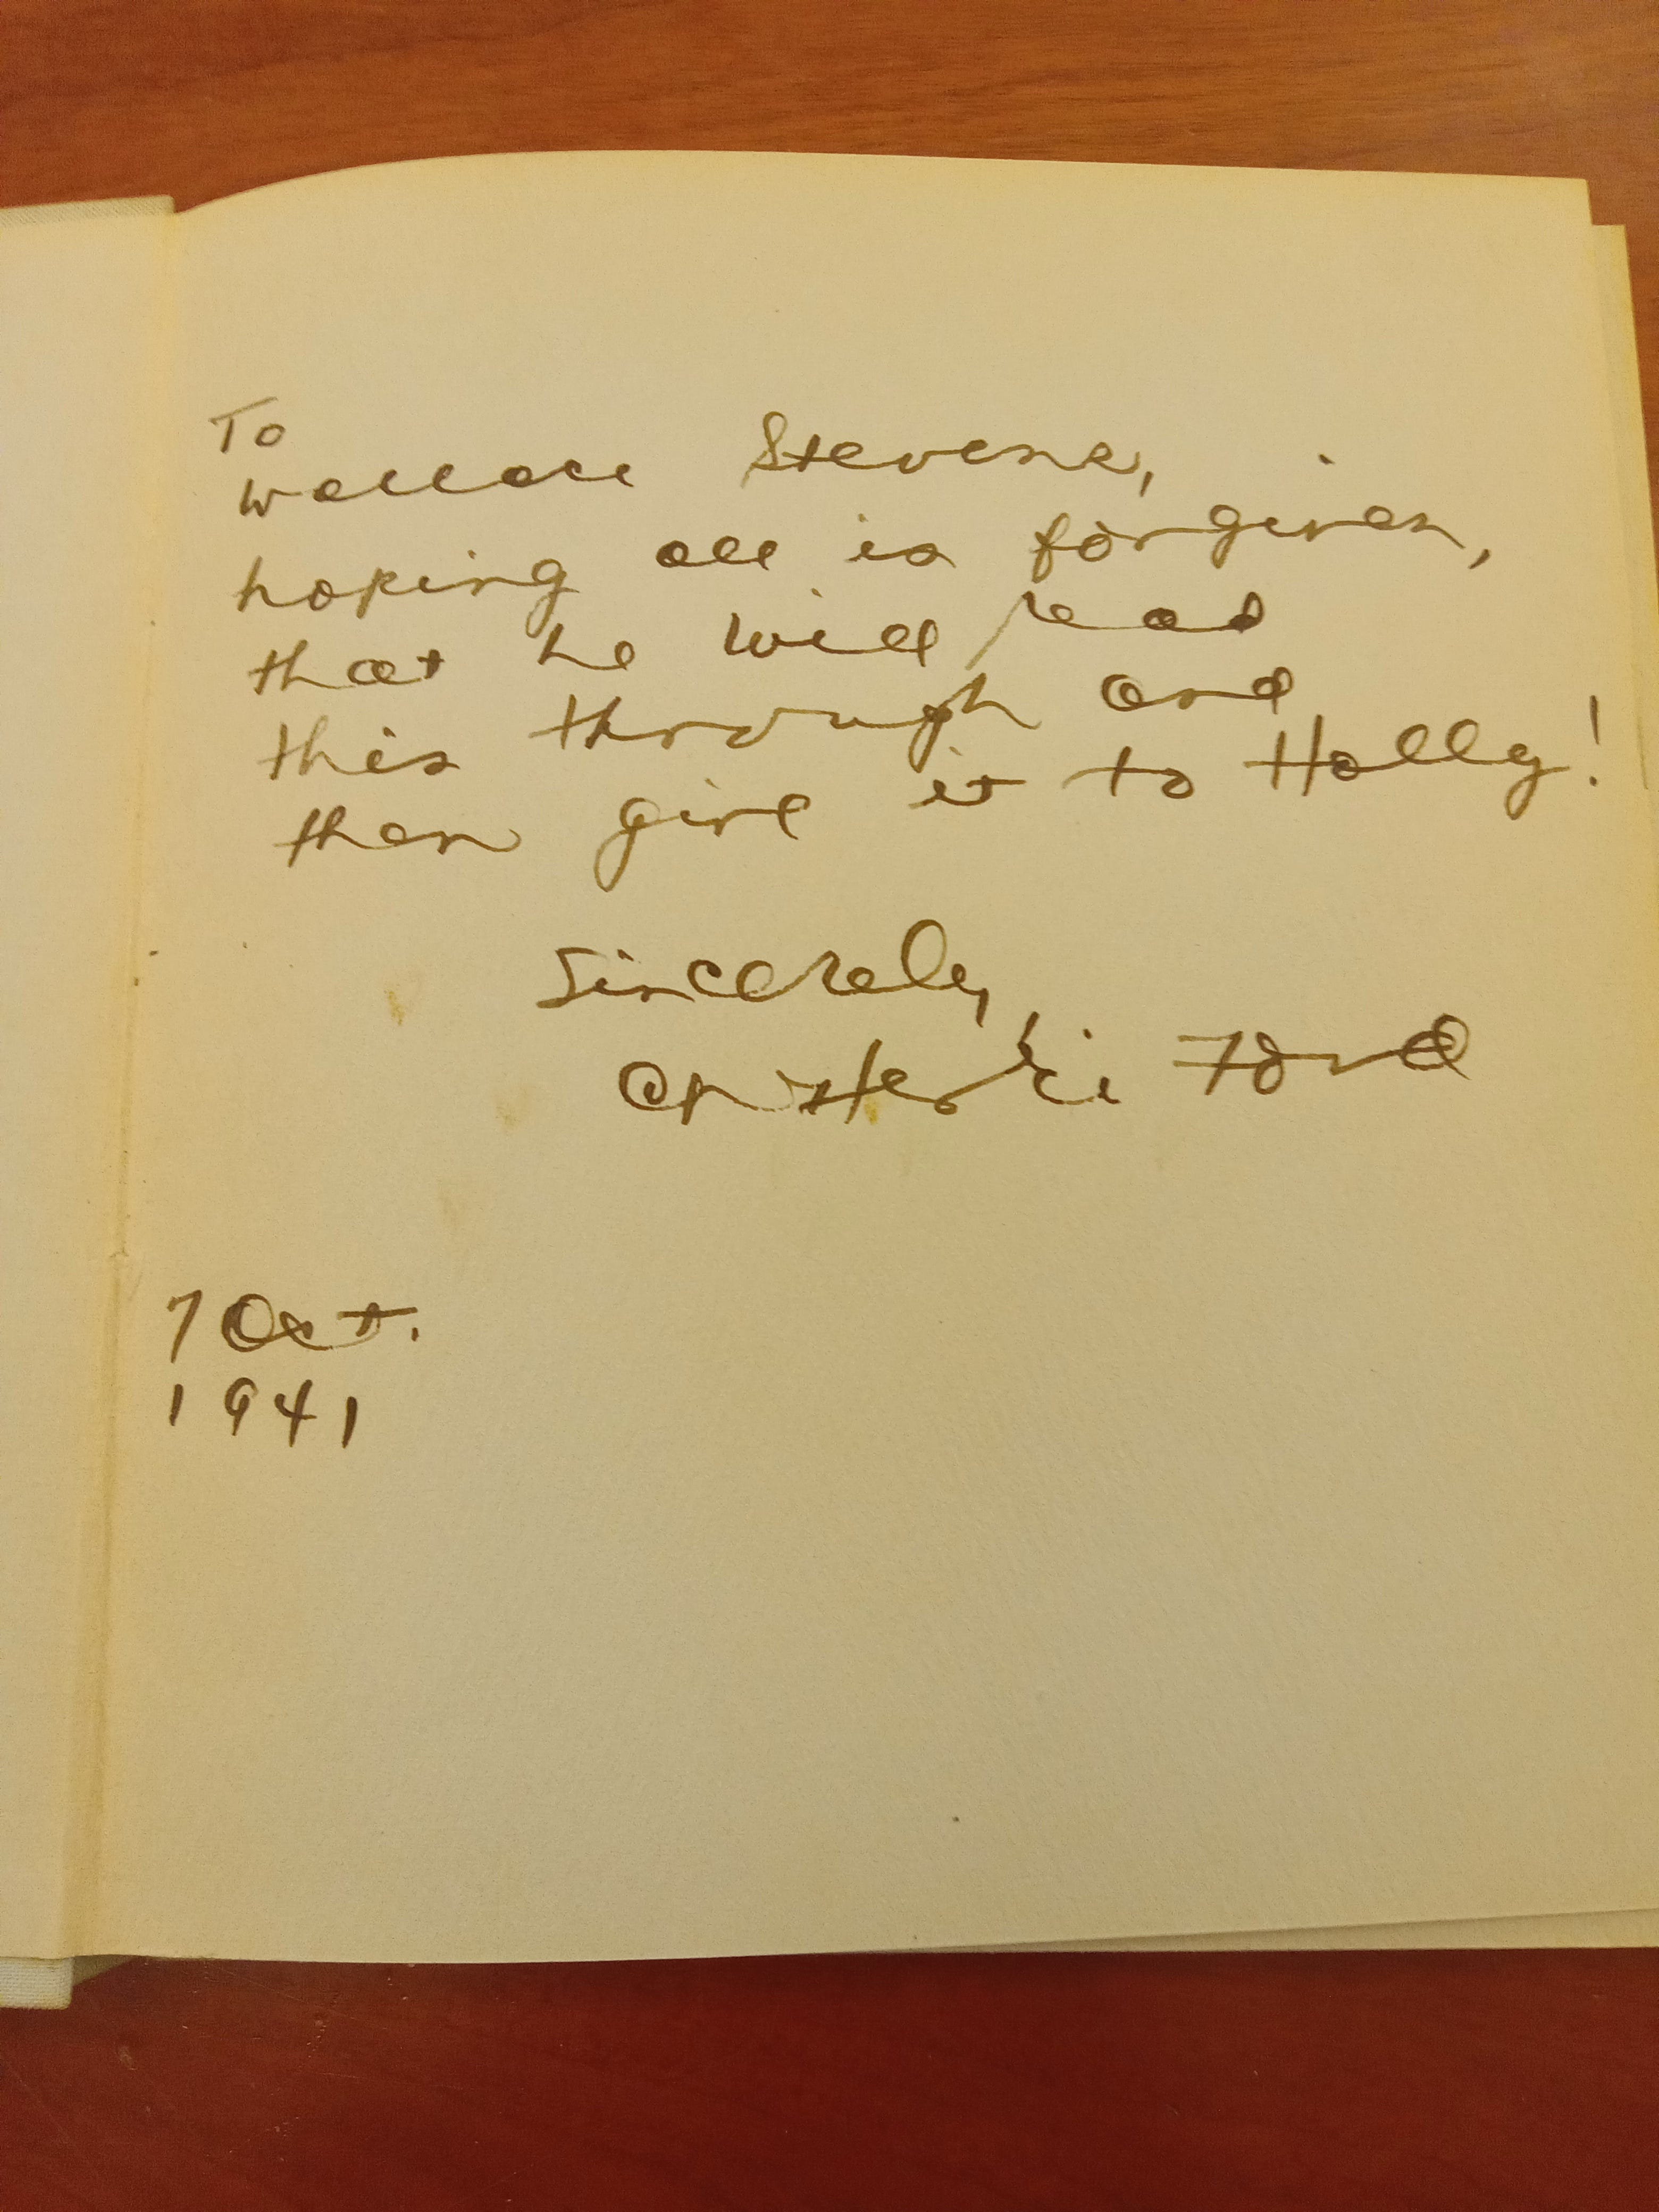 To
Wallace Stevens,
hoping all is forgiven,
that he will read
this through and
then give it to Holly!
Sincerely,
Charles Henri Ford
7 Oct.
1941